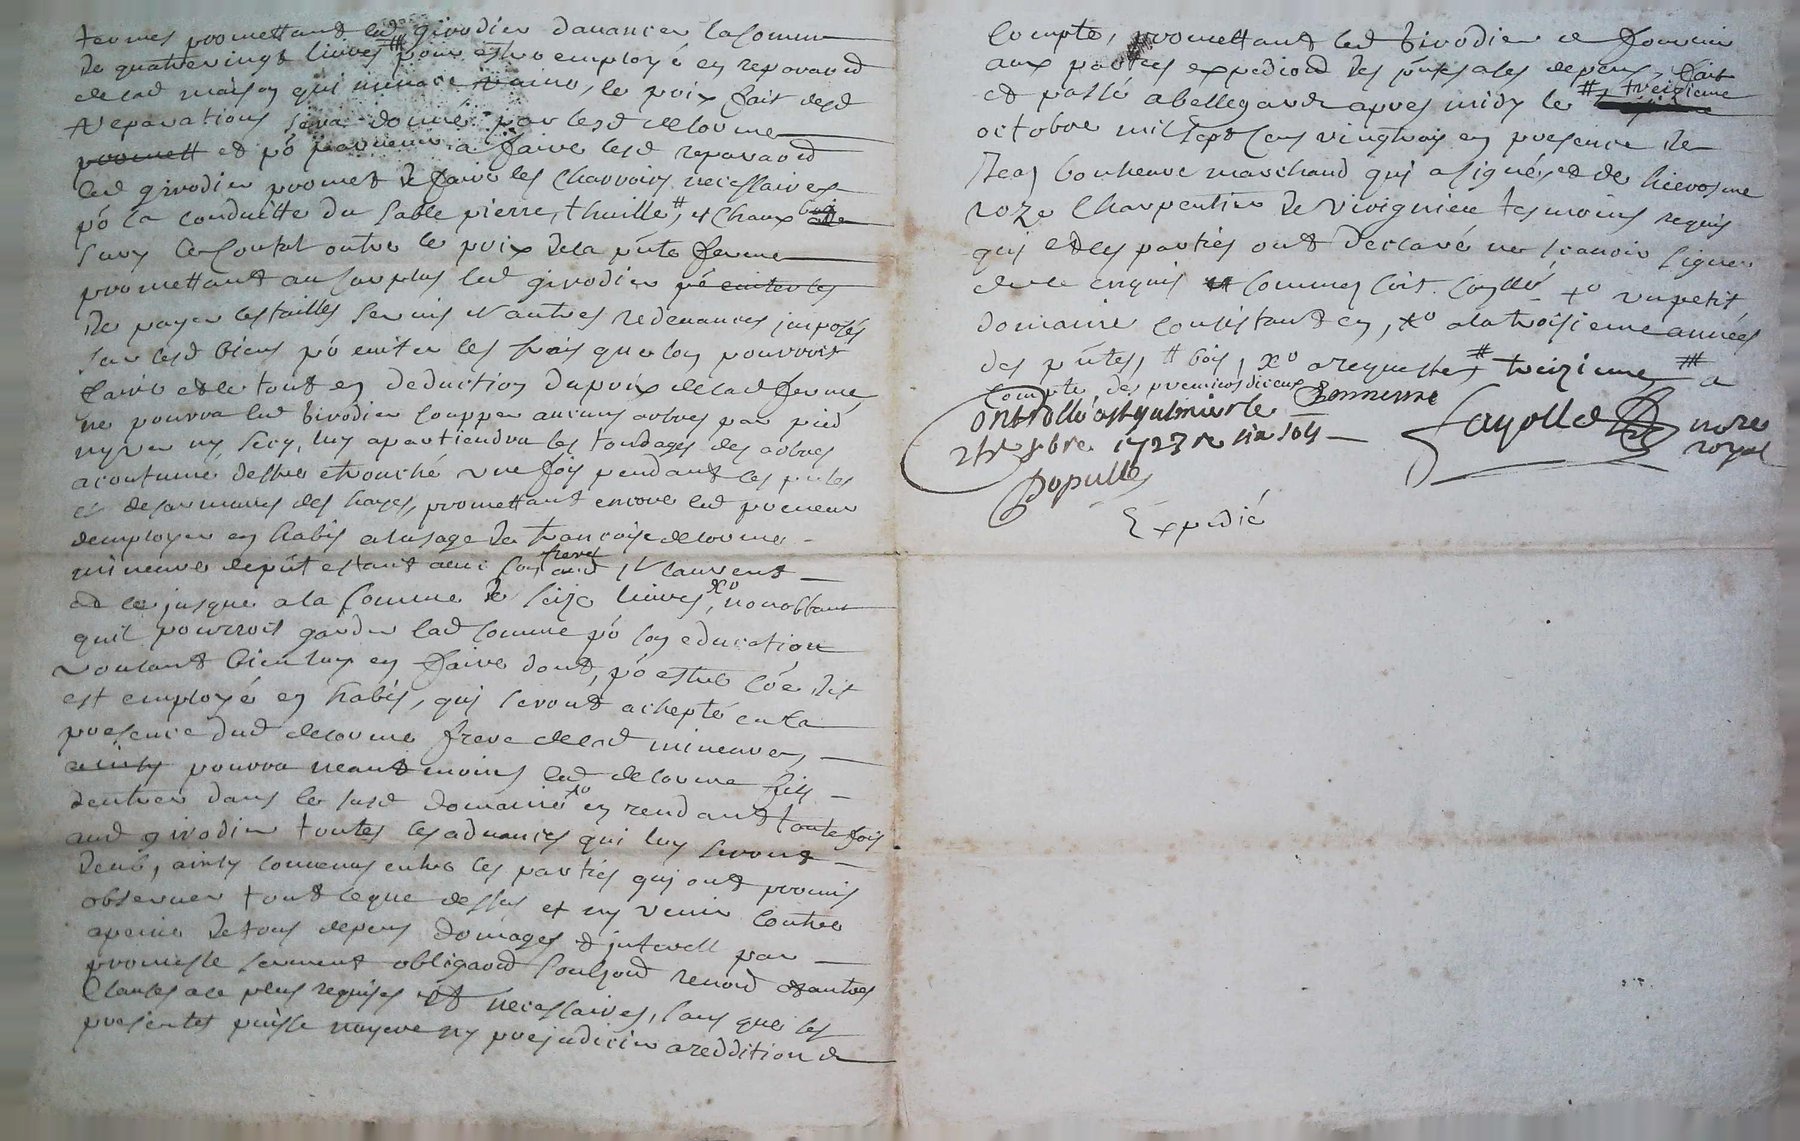 termes promettant led girodier davancer la somme
de quatrevingt livres # pour estre employé en reparaõns
delad maison qui menace ruine, le prix fait desd
reparations sera donné par lesd delorme
promett et põ parvenir a faire lesd reparaõns
led girodier promet de faire les charrois necessaires
põ la conduitte du sable pierre, thuille, # et chaux
sans ce contat outre le prix dela pñte ferme
promettant au surplus led girodier põ eviter les
de payer les tailles servis et autres redevances imposés
sur lesd biens põ eviter les frais que lon pourroit
faire et le tout en deduction du prix delad ferme
ne pourra led girodier coupper aucuns arbres par pied
ny vers ny secq, luy apartiendra les tondages des arbres
acoutumé destre etronché une fois pendant les pñtes
et desormures des hayes, promettant encore led preneur
demployer en habis a lusage de francoise delorme
mineure depñt estant avec son frere aud St laurent
et ce jusque a la somme de seize livres, xº nonobstant
quil pourroit garder lad somme põ son education
voulant bien luy en faire dont, põ estre cõe dit
est employé en habis, qui seront achepté en la
presence dud delorme frere delad mineure,
ainsy pourra neantmoins led delorme fils
dentrer dans le susd domaine xº en rendant toute fois
aud girodier toutes les advances qui luy seront
deub, ainsy convenus entre les parties qui ont promis
observer tout ceque dessus et ny venir contre
apeine de tous depens domages et interest par
promesse serment obligaõn soubmiõn renonõn et autres
clauses a ce plus requises et necessaires, sans que les
presentes puisse nuyre ny prejudicier a reddition de
compte, promettant led girodier de fournir
aux parties expediõn des pñtes a ses depens, fait
et passé a bellegarde apres midy le # treizieme
octobre mil sept cens vingt trois en presence de
Jean bonneure marchand qui a signé, et de hierosme
roze charpentier de virignieu tesmoins requis
qui et les parties ont declaré ne scavoir signer
de ce enquis et sommes soit controllé, xº un petit
domaine consistant en, xº a la troisieme années
des pñtes, # bois, xº a requeste, # treizieme # a
compte de premiers deceux Bonneure
Controllé a st galmier le
octobre 1723 R six sols
Fayolle nore
royal
Populle
Expedié